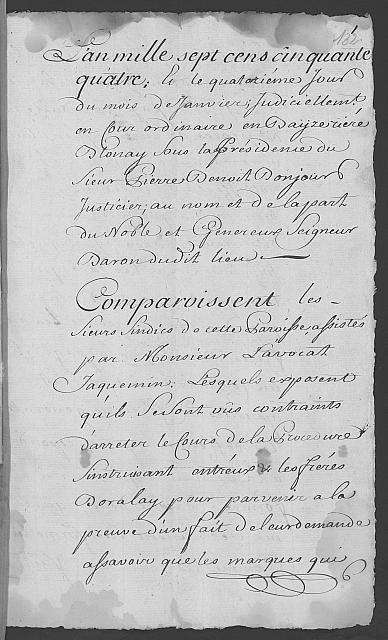 182
L'an mille sept cens cinquante
quatre; Et le quatorzieme Jour
du mois de Janvier; Judiciellemt
en Cour ordinaire en
Blonay sous la Présidence du
Sieur Pierre Benoit Bonjour
Justicier; au nom et de la part
du Noble et Genereux Seigneur
Baron dudit lieu
Comparoissent les
Sieurs Sindics de cette Paroisse assistés
par Monsieur L'avocat
Jaquemin; Lesquels exposent
qu'ils se sont vûs contraints
d'arreter le Cours de la Procedure
s'instruisant entr'eux & les frères
Doralay pour parvenir a la
preuve d'un fait de leur demande
assavoir que les marques qui